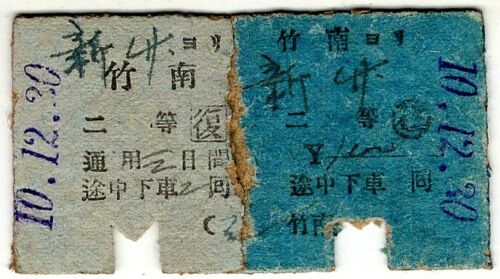 10.12.20
新竹ヨリ
竹南
二等 復
通用二日間
途中下車2回
竹南ヨリ
新竹
二等
途中下車 回
竹南
10.12.20